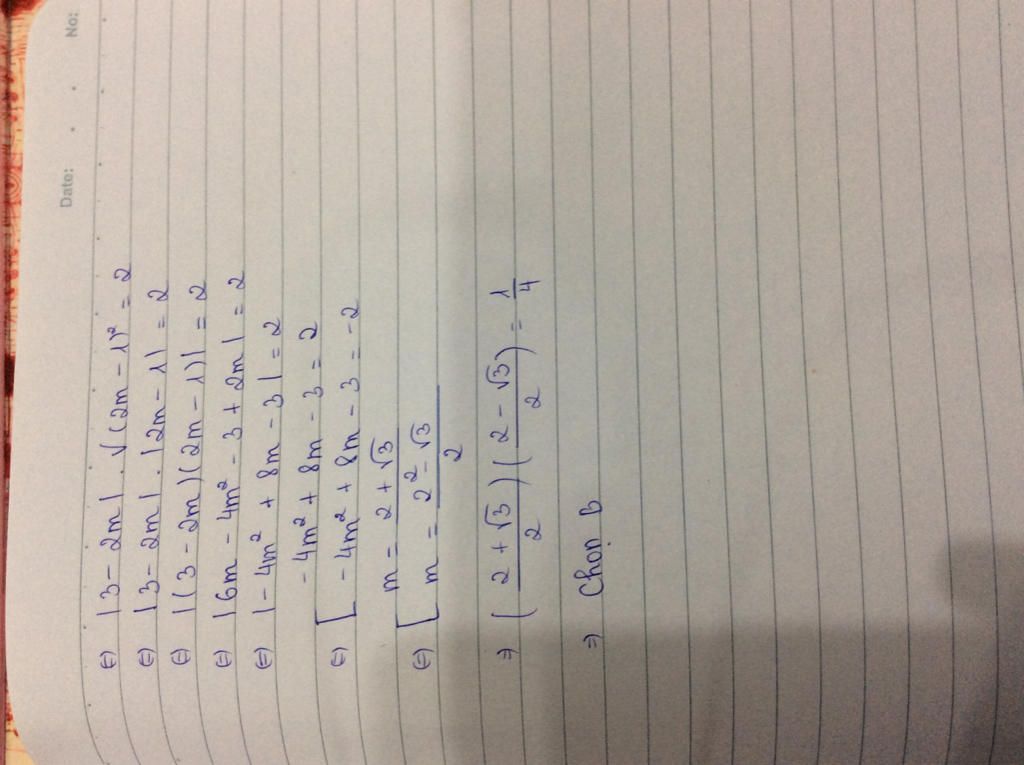 No:
Date:
⇔ |3 - 2m| . √(2m - 1)² = 2
⇔ |3 - 2m| . |2m - 1| = 2
⇔ |(3 - 2m)(2m - 1)| = 2
⇔ |6m - 4m² - 3 + 2m| = 2
⇔ |-4m² + 8m - 3| = 2
⇔ [ -4m² + 8m - 3 = 2
-4m² + 8m - 3 = -2
⇔ [ m = (2 + √3)/2
m = (2 - √3)/2
⇒ ((2 + √3)/2)((2 - √3)/2) = 1/4
⇒ Chọn B